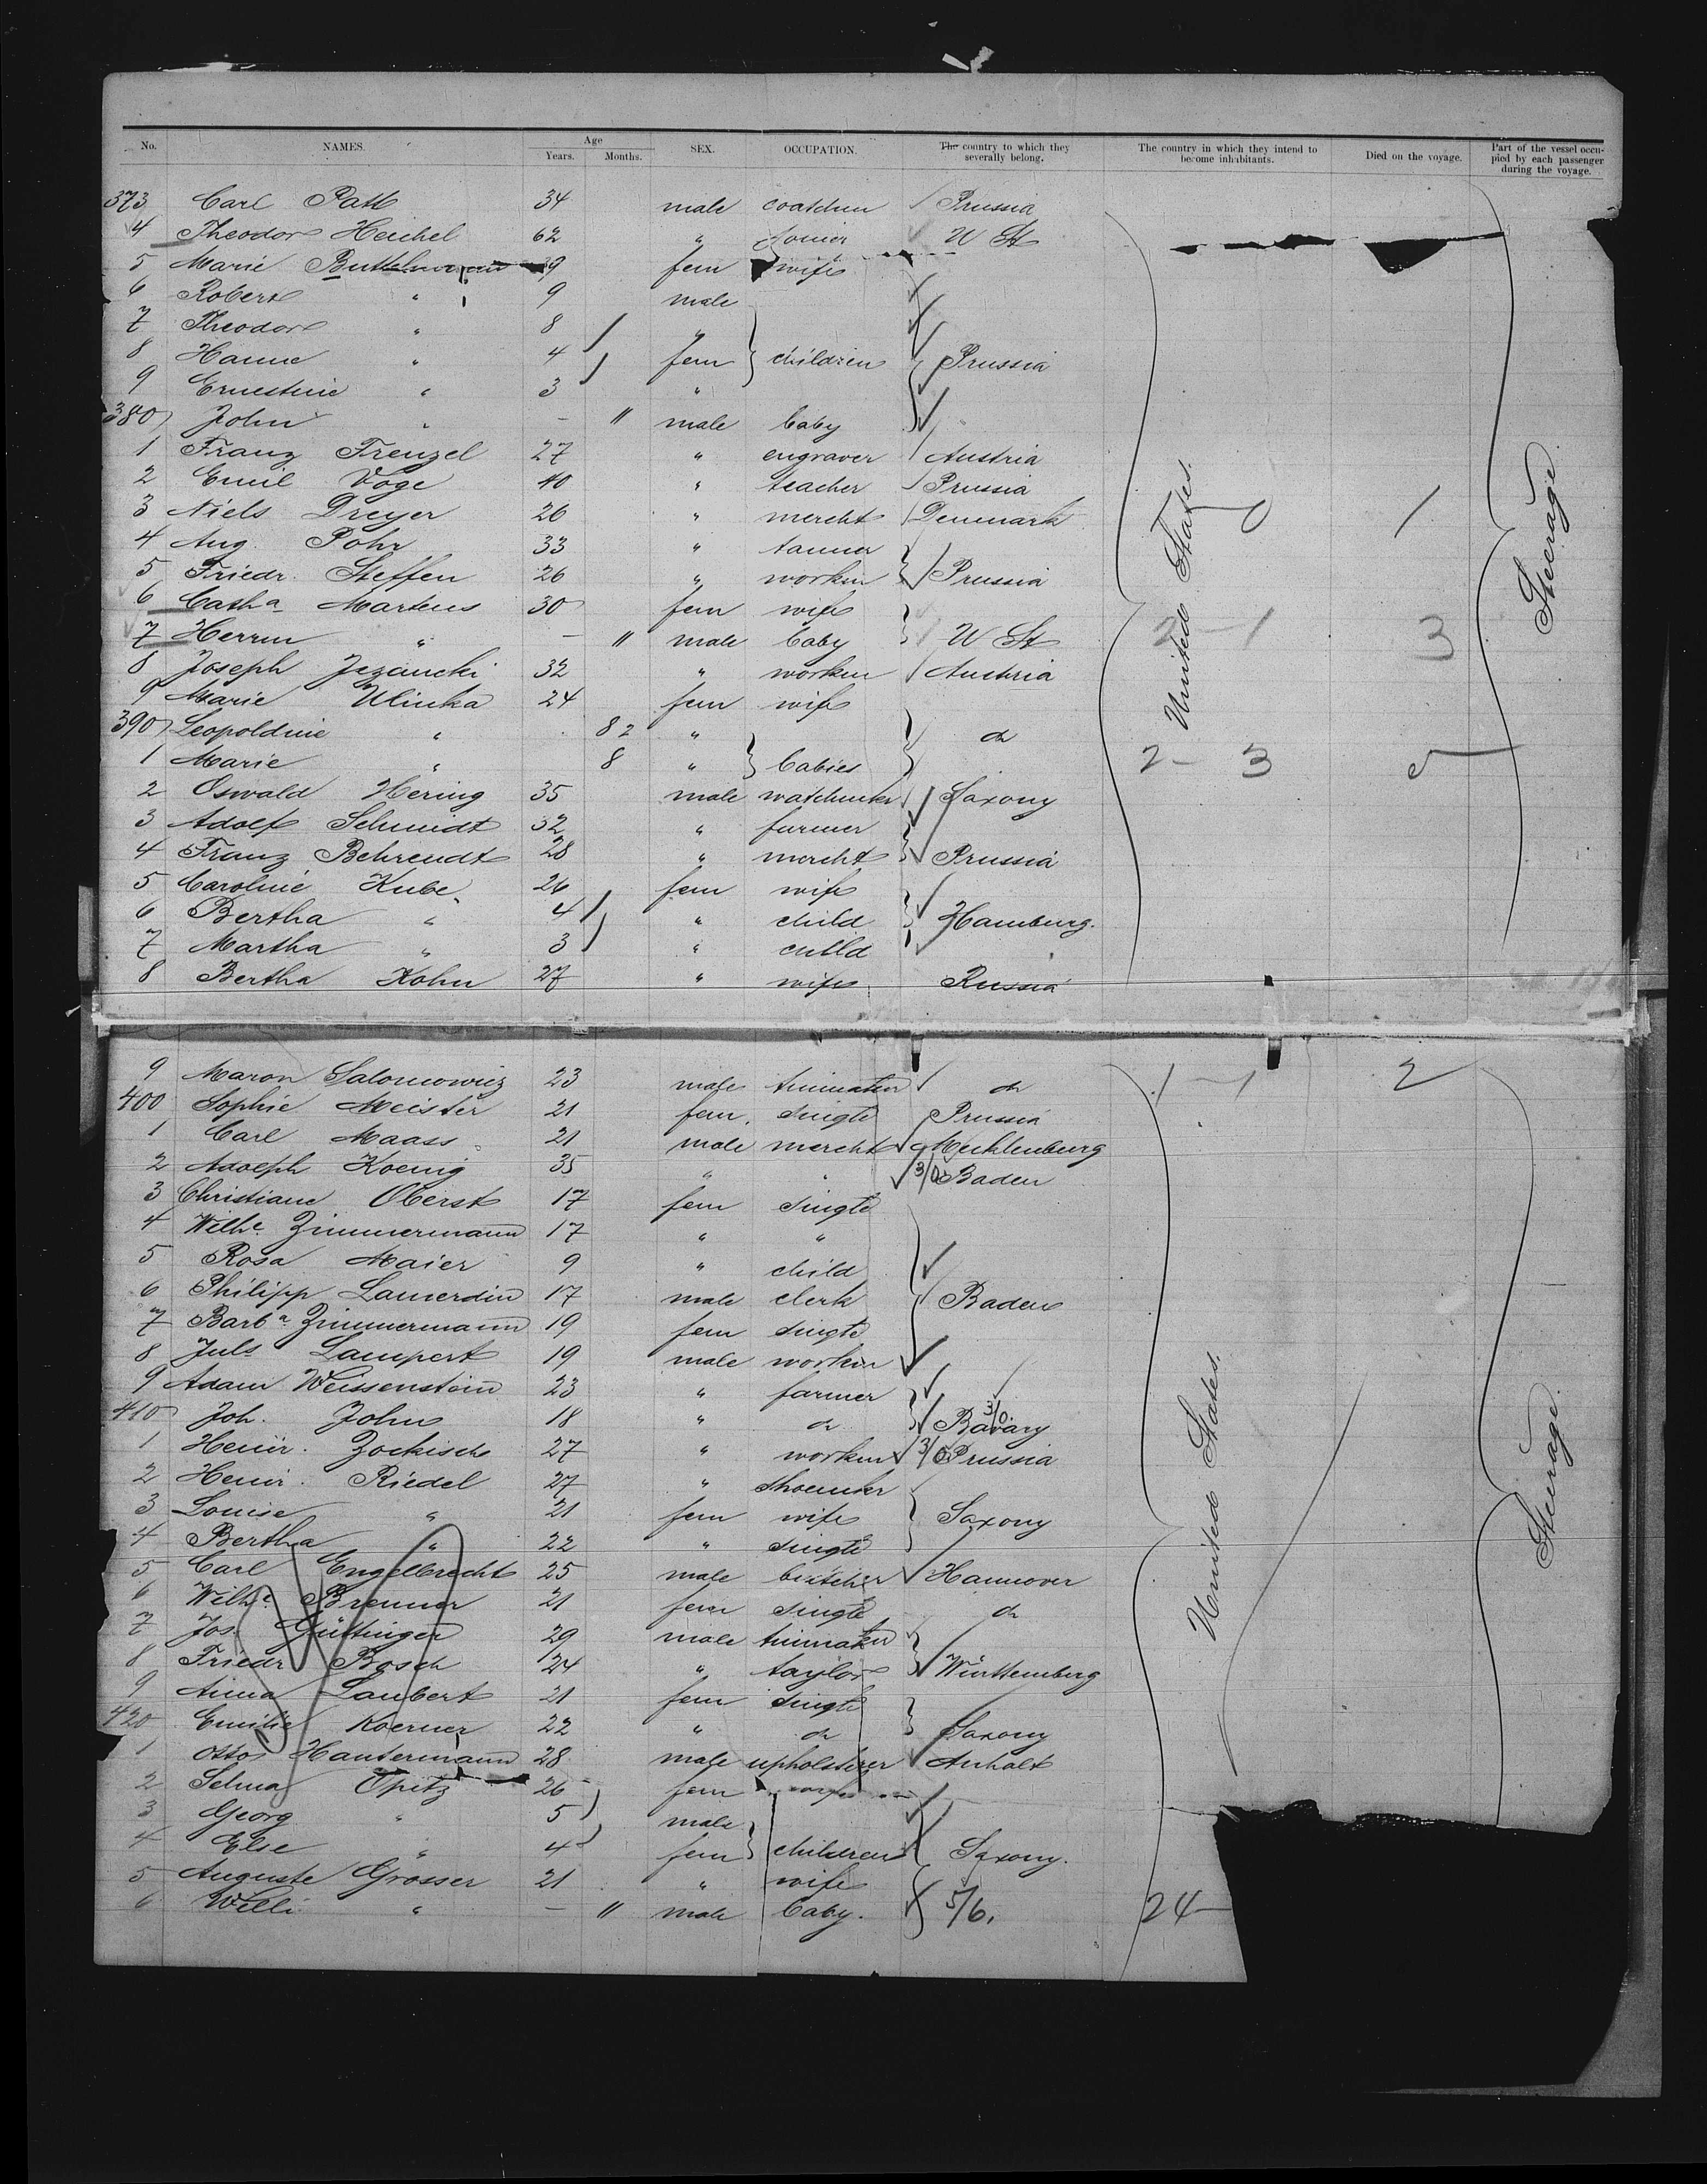 No. NAMES. Age Years. Months. SEX. OCCUPATION. The country to which they severally belong. The country in which they intend to become inhabitants. Died on the voyage. Part of the vessel occupied by each passenger during the voyage.
373 Carl Patt 34 male Prussia
4 Theodor Heichel 62 " W St
5 Marie fem wife
6 Robert " 9 male
7 Theodor " 8 "
8 Hanne " 4 fem children Prussia
9 Ernestine " 3 "
380 John " – 11 male baby
1 Franz Frenzel 27 " engraver Austria
2 Emil Voge 40 " teacher Prussia
3 Niels Dreyer 26 " mercht Denmark 1
4 Aug. Pohr 33 " tanner
5 Friedr. Steffen 26 " workm Prussia
6 Casha Martens 30 fem wife
7 Herrm " – 11 male baby W St 2 – 1 3
8 Joseph 32 " workm Austria
9 Marie Ulinka 24 fem wife
390 Leopoldine " 8 2 " do
1 Marie " 8 " babies 2 – 3
2 Oswald Hering 35 male watchmkr Saxony
3 Adolf Schmidt 32 " farmer
4 Franz Behrendt 28 " mercht Prussia
5 Caroline Kube 26 fem wife
6 Bertha " 4 " child Hamburg.
7 Martha " 3 " child
8 Bertha Kohn 27 " wife Russia
United States.
Steerage
9 Maron Salomowicz 23 male do 1 – 1 2
400 Sophie Meister 21 fem. singte Prussia
1 Carl Maass 21 male mercht Mecklenburg
2 Adolph Koenig 35 " " 3/0 Baden
3 Christiane Oberst 17 fem singte
4 Wilhe Zimmermann 17 " "
5 Rosa Maier 9 " child
6 Philipp Lamerdin 17 male clerk Baden
7 Barba Zimmermann 19 fem singte
8 Juls Lampert 19 male workm
9 Adam Weissenstein 23 " farmer
410 Joh. John 18 " do Bavary 3/0.
1 Heinr. Zockisch 27 " workm 3/0 Prussia
2 Heinr. Riedel 27 " shoemkr
3 Louise " 21 fem wife Saxony
4 Bertha " 22 " singte
5 Carl Engelbrecht 25 male butcher Hannover
6 Wilhe Brenner 21 fem singte do
7 Jos. Güttinger 29 male
8 Friedr Bosch 24 " taylor Württemberg
9 Anna Laubert 21 fem singte
420 Emilie Koerner 22 " do Saxony
1 Otto Hantermann 28 male upholsterer Anhalt
2 Selma Opitz 26 fem wife
3 Georg " 5 male
4 Else " 4 fem children Saxony.
5 Auguste Grosser 21 " wife
6 Willi " – 11 male baby. 5/6. 24 –
United States.
Steerage